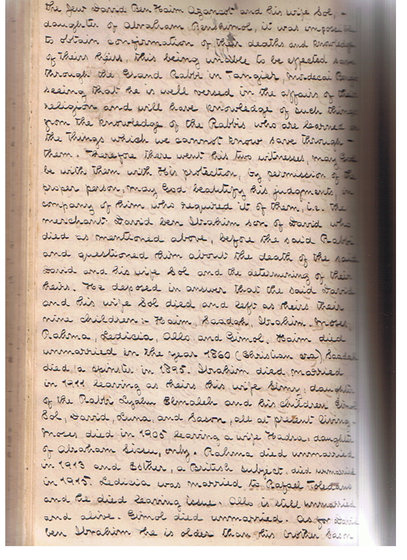 the Jew David Ben Haim Azancot and his wife Sol, -
daughter of Abraham Benshimol, it was
to obtain confirmation of their deaths and knowledge
of their heirs, this being unable to be effected save
through the Grand Rabbi in Tangier, Mordecai
seeing that he is well versed in the affairs of their
religion and will have knowledge of such things
from the knowledge of the Rabbis who are learned in
the things which we cannot know save through -
them. Therefore there went his two witnesses, may God
be with them with His protection, by permission of the
proper person, may God beautify his judgments, in
company of him who required it of them, i.e. the
merchant David ben Ibrahim son of David who
died as mentioned above, before the said Rabbi
and questioned him about the death of the said
David and his wife Sol and the determining of their
heirs. He deposed in answer that the said David
and his wife Sol died and left as their heirs their
nine children :- Haim, Saadah, Ibrahim, Moses,
Rahma, Ledicia, Allo and Simol. Haim died
unmarried in the year 1860 (Christian era) Saadah
died, a spinster in 1895. Ibrahim died married
in 1911 leaving as heirs his wife Simy, daughter
of the Rabbi Elmaleh and his children Simol
Sol, David, Luna, and Sason, all at present living -
Moses died in 1905, leaving a wife Hadra, daughter
of Abraham only. Rahma died unmarried
in 1913 and Esther, a British subject, died unmarried
in 1915. Ledicia was married to Rafael Toledano
and he died leaving issue. Allo is still unmarried
and alive. Simol died unmarried. As for David
ben Ibrahim he is older than his brother Sason